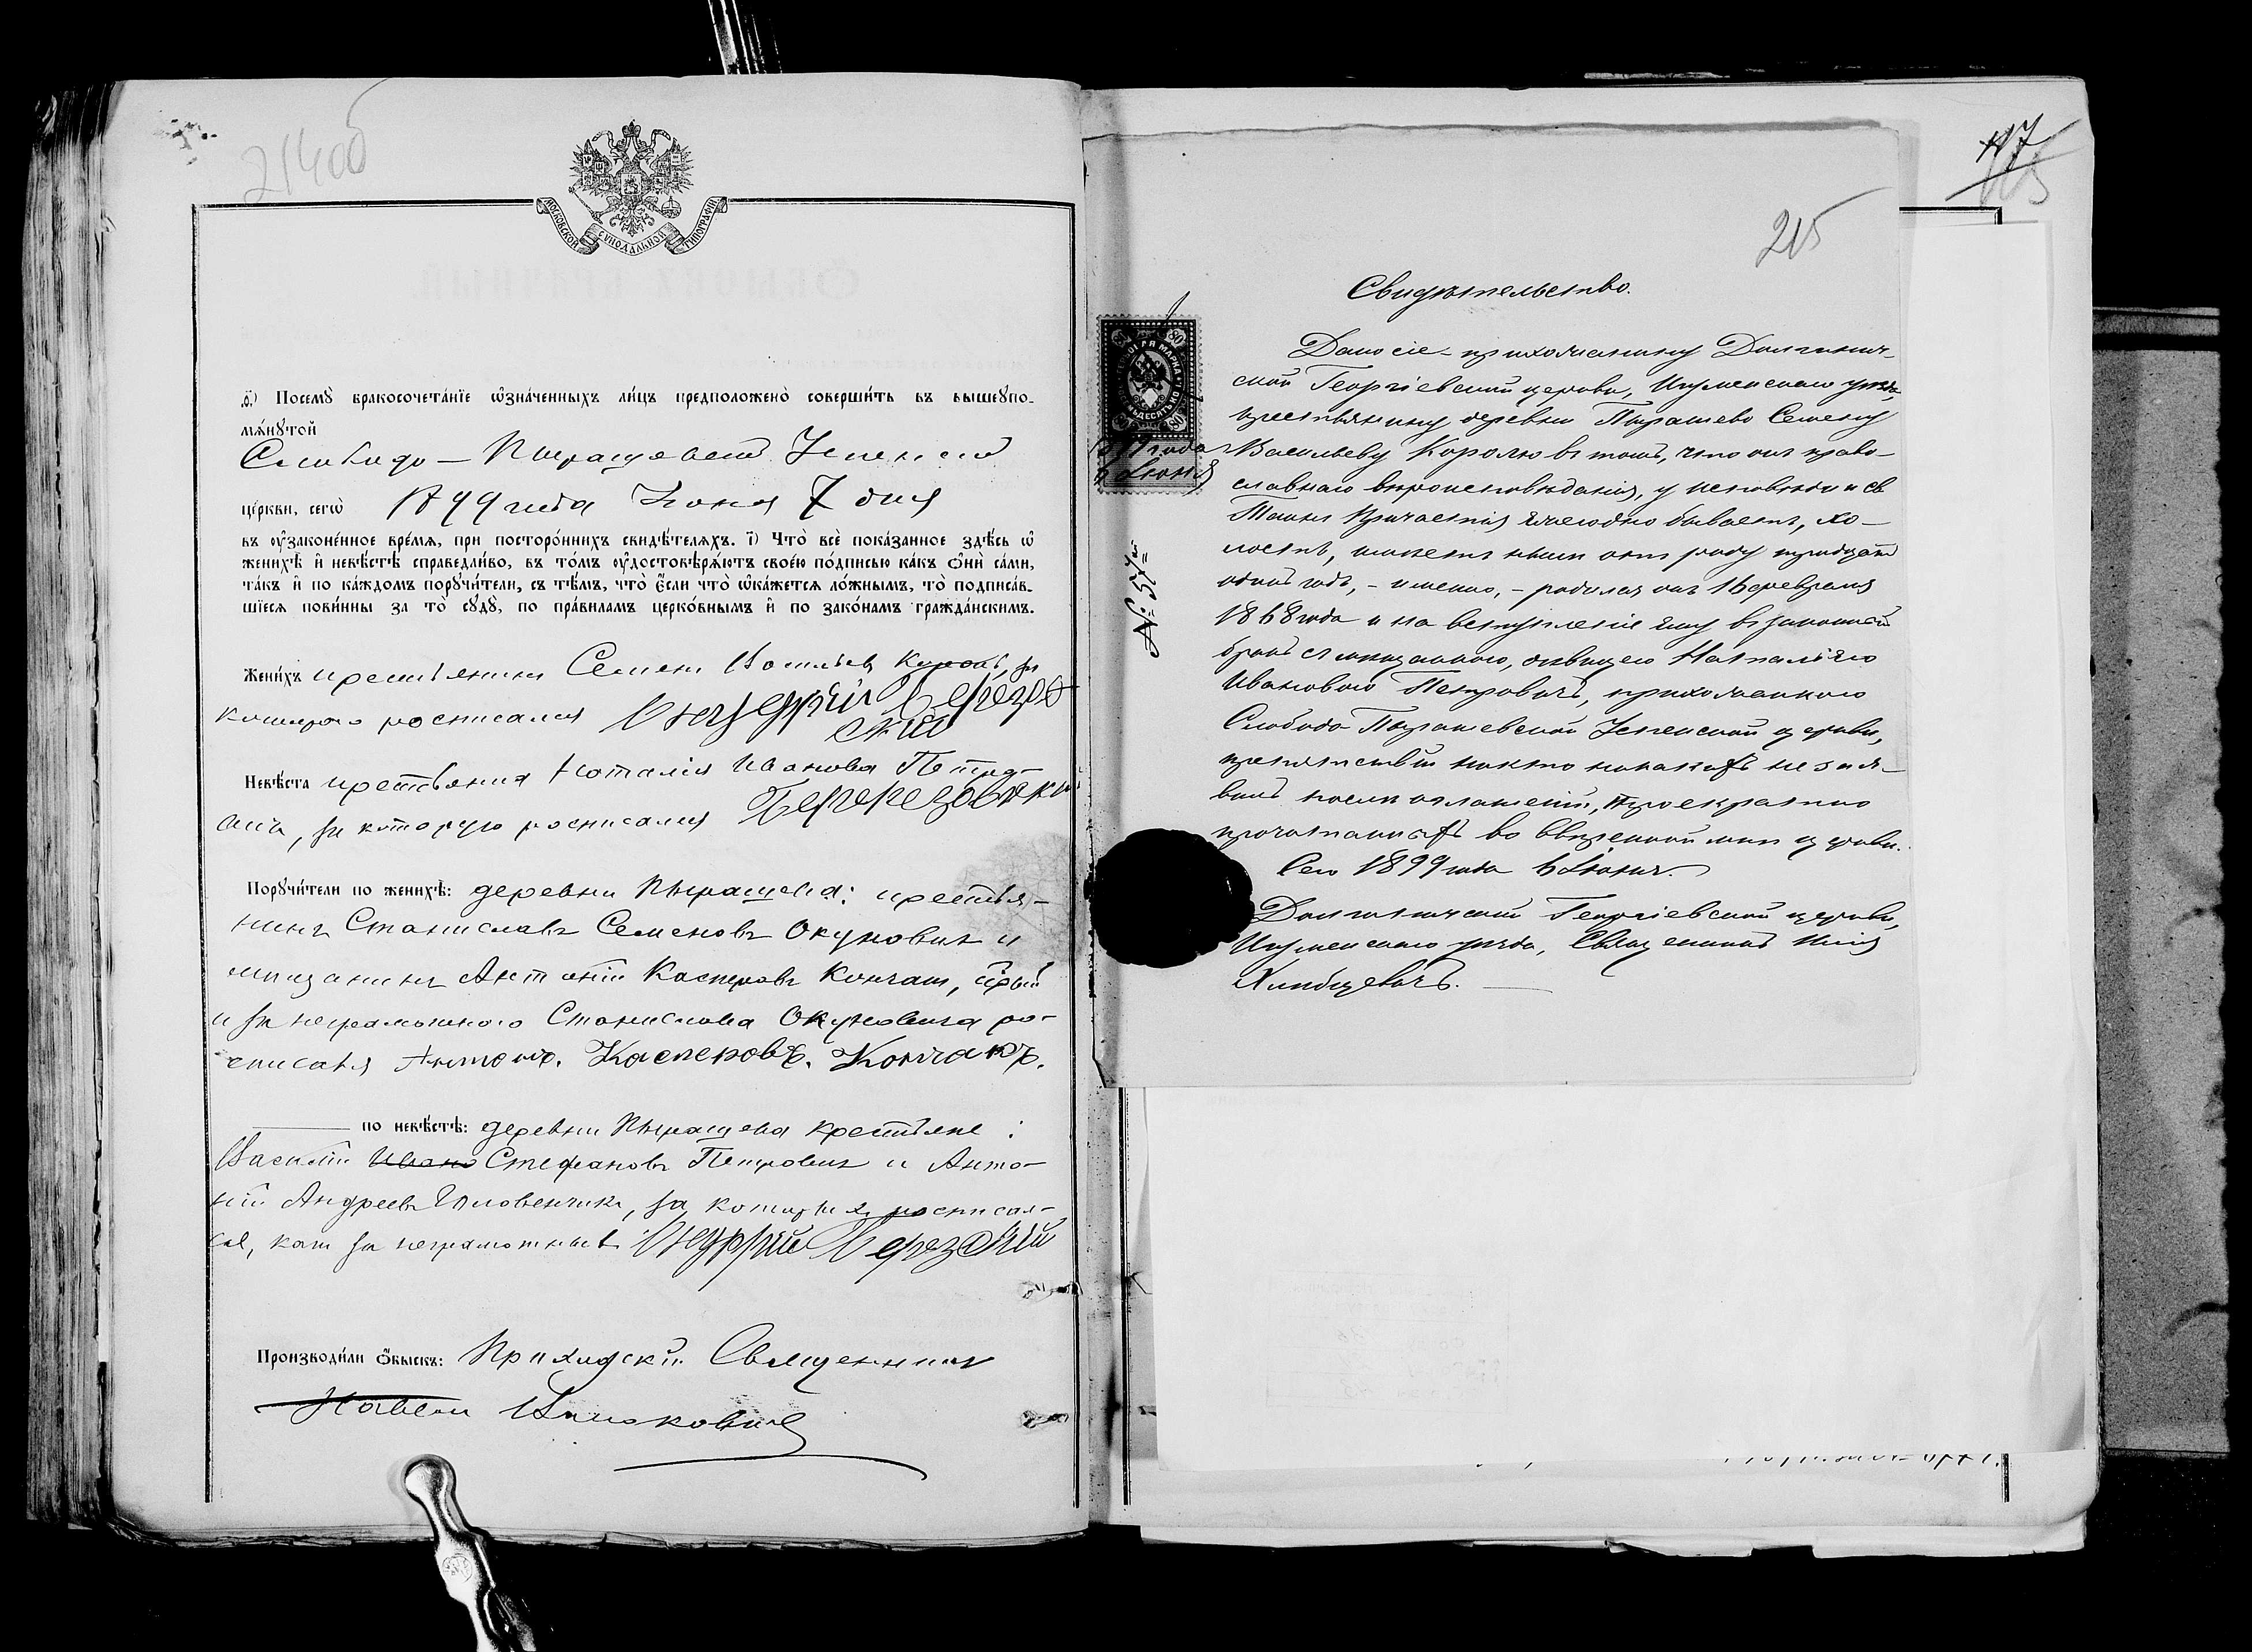 214об
МОСКОВСКОЙ СѴНОДАЛЬНОЙ ТИПОГРАФІИ
Посемꙋ̀ бракосочета́нїе ѡ҆зна́ченныхъ ли́цъ предположено̀ соверши́ть въ вышеꙋпо-
мѧ́нꙋтой
Слободо-Пырашевской Успенской
це́ркви, сегѡ̀ 1899 года Іюня 7 дня
въ ᲂу҆зако́ненное вре́мѧ, при посторо́ннихъ свидѣ́телѧхъ. і҃) Что̀ всѐ пока́занное здѣ́сь ѡ҆
женихѣ̀ и҆ невѣ́стѣ справедли́во, въ то́мъ ᲂу҆достовѣрѧ́ютъ свое́ю по́дписью ка́къ ѻ҆нѝ са́ми,
та́къ и҆ по ка́ждомъ порꙋчи́тели, съ тѣ́мъ, что̀ є҆́сли что̀ ѡ҆ка́жется ло́жнымъ, то̀ подписа́в-
шїесѧ пови́нны за то̀ сꙋдꙋ̀, по пра́виламъ церко́внымъ и҆ по зако́намъ гражда́нскимъ.
Жени́хъ крестьянинъ Семенъ Васильевъ Король, за
котораго росписался Онуфрій Березов
скій
Невѣ́ста крестьянка Наталія Иванова Петро-
вичъ, за которую росписался Беререзовскій
Порꙋчи́тели по женихѣ̀: деревни Пырашева: крестья-
нинъ Станиславъ Семеновъ Окуновичъ и
мѣщанинъ Антоній Касперовъ Кончакъ,
и за неграмотнаго Станислава Окуновича ро-
списался Антонъ. Касперовъ. Кончакъ.
по невѣ́стѣ: деревни Пырашева крестьяне:
Василій Ивано Стефановъ Петровичъ и Анто-
ній Андреевъ Головенчикъ, за которыхъ росписал-
ся, какъ за неграмотныхъ Онуфрій Березовскій
Производи́ли ѻ҆́быскъ: Приходскій Священникъ
Павелъ
117
215
Свидѣтельство.
Дано сіе прихожанину Долгинич-
ской Георгіевской церкви, Игуменскаго уѣзда,
крестьянину деревни Пырашево Семену
Васильеву Королю въ томъ, что онъ право-
славнаго вѣроисповѣданія, у исповѣди и св
Таинъ Причастія ежегодно бываетъ, хо-
лостъ, имѣетъ нынѣ отъ роду тридцать
одинъ годъ, - именно, - родился онъ 16 февраля
1868 года и на вступленіе ему въ законный
бракъ съ мѣщанкою, дѣвицею Наталіею
Ивановою Петровичъ, прихожанкою
Слободо Пырашевской Успенской церкви,
препятствій никто никакихъ не заяв-
вилъ послѣ оглашеній, троекратно
прочитанныхъ во ввѣренной мнѣ церкви.
Сего 1899 года 6 Іюня.
Долгиничской Георгіевской церкви,
Игуменскаго уѣзда, Священникъ Илія
Хлѣбцевичъ.
80
1899 года
6 Іюня